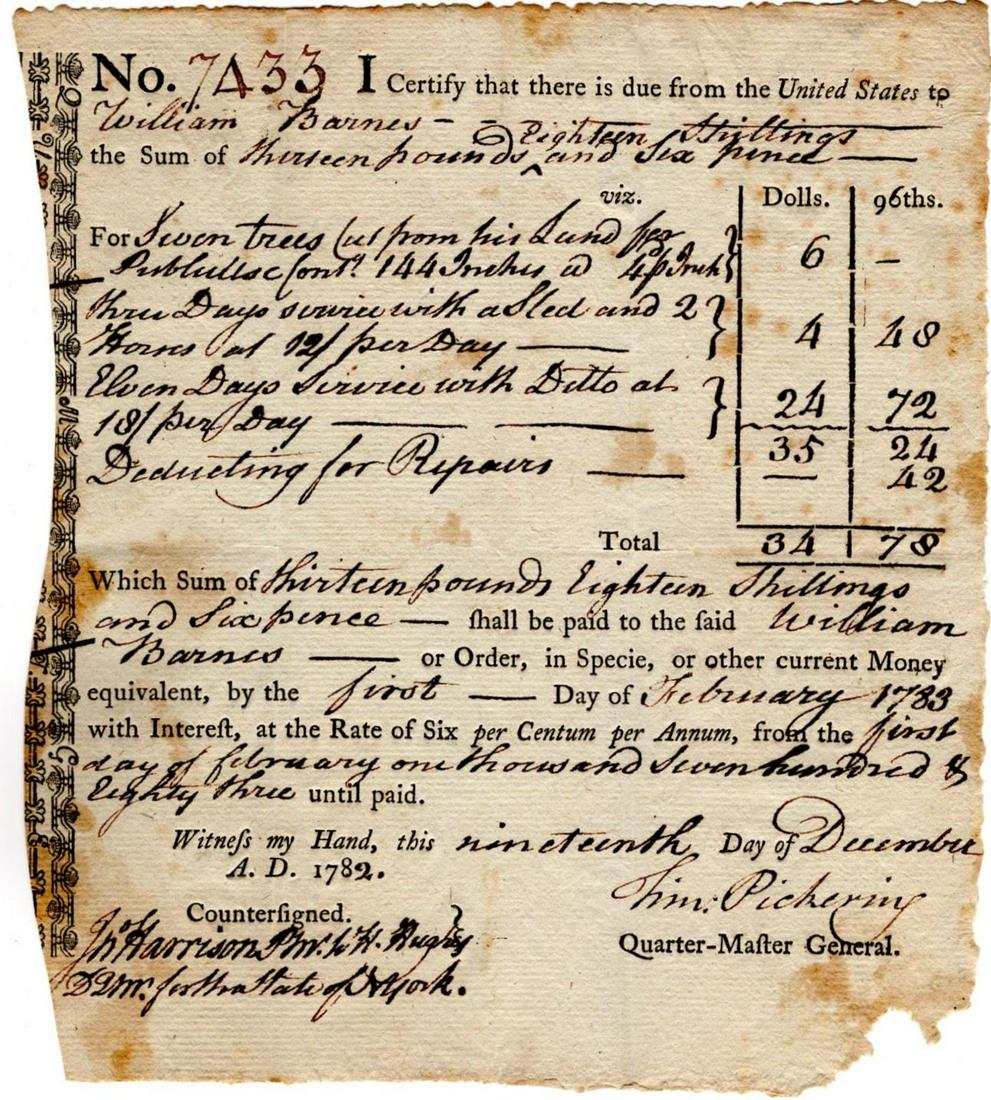 No. 7433 I Certify that there is due from the United States to
William Barnes - - Eighteen Shillings
the Sum of thirteen pounds ^ and Six pence —
viz. Dolls. 96ths.
For Seven trees Cut from his Land for
Publick use Contg. 144 Inches @ 4/p Inch } 6 —
three Days service with a Sled and 2
Horses at 12/ per Day — } 4 48
Eleven Days service with Ditto at
18/ per Day — — } 24 72
35 24
Deducting for Repairs — — 42
Total 34 78
Which Sum of thirteen pounds Eighteen Shillings
and Six pence — ſhall be paid to the ſaid William
Barnes — or Order, in Specie, or other current Money
equivalent, by the first — Day of February 1783
with Intereſt, at the Rate of Six per Centum per Annum, from the first
day of february one thousand Seven hundred &
Eighty three until paid.
Witneſs my Hand, this nineteenth Day of December
A. D. 1782.
Tim: Pickering
Counterſigned.
Quarter-Maſter General.
Jno Harrison Pmr. to H. Hughes
DQmr. for the State of N York.